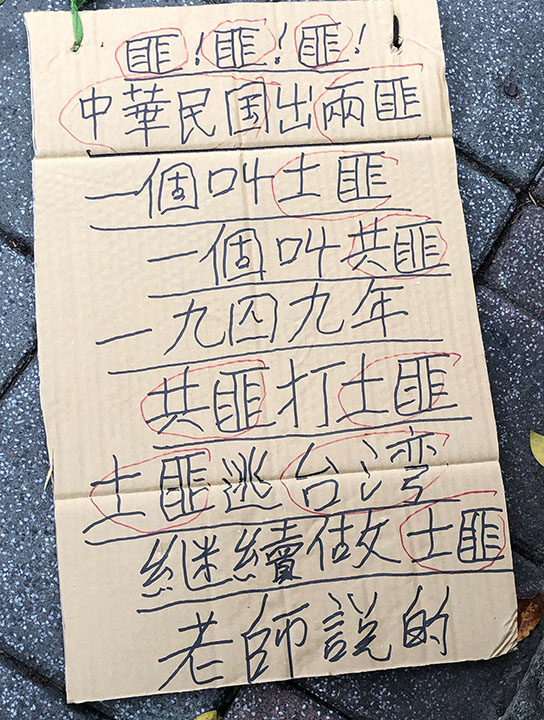 匪!匪!匪!
中華民国出兩匪
一個叫土匪
一個叫共匪
一九四九年
共匪打土匪
土匪逃台湾
継續做土匪
老師説的